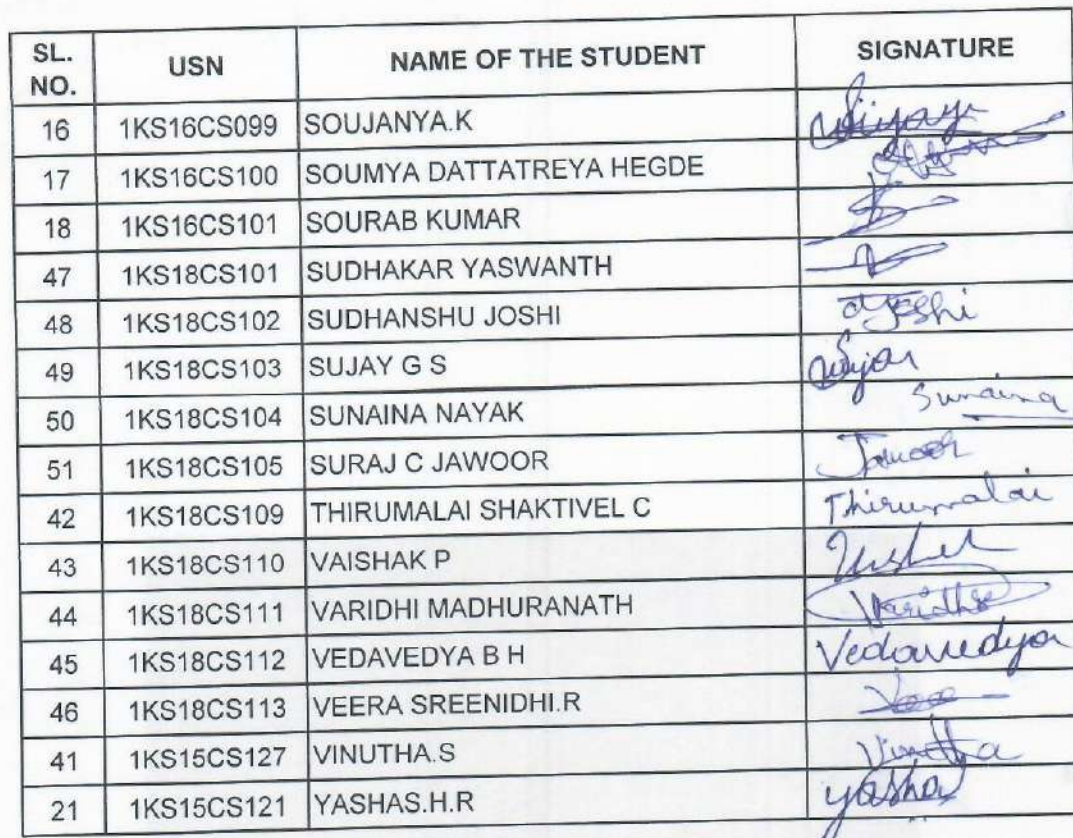 SL. NO. USN NAME OF THE STUDENT SIGNATURE
16 1KS16CS099 SOUJANYA.K
17 1KS16CS100 SOUMYA DATTATREYA HEGDE
18 1KS16CS101 SOURAB KUMAR
47 1KS18CS101 SUDHAKAR YASWANTH
48 1KS18CS102 SUDHANSHU JOSHI
49 1KS18CS103 SUJAY G S
50 1KS18CS104 SUNAINA NAYAK Sunaina
51 1KS18CS105 SURAJ C JAWOOR Jawoor
42 1KS18CS109 THIRUMALAI SHAKTIVEL C Thirumalai
43 1KS18CS110 VAISHAK P
44 1KS18CS111 VARIDHI MADHURANATH Varidhi
45 1KS18CS112 VEDAVEDYA B H Vedavedya
46 1KS18CS113 VEERA SREENIDHI.R
41 1KS15CS127 VINUTHA.S Vinutha
21 1KS15CS121 YASHAS.H.R yashas